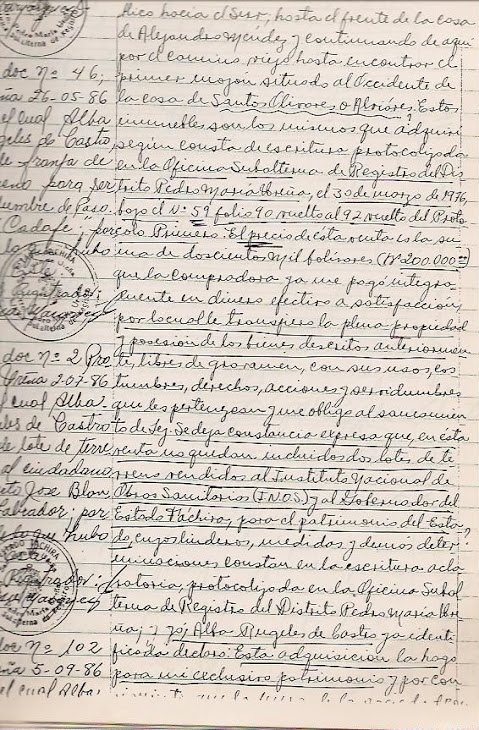 lico hacia el Sur; hasta el frente de la casa
de Alejandro Mendez y continuando de aquí
por el camino viejo hasta encontrar el
primer mojón situado al Occidente de
la casa de Santos Olivares o Alviárez. Estos
inmuebles son los mismos que adquirí
según consta de escritura protocolizada
en la Oficina Subalterna de Registro del Dis-
trito Pedro María Ureña, el 30 de marzo de 1976,
bajo el Nº 59 folio 90 vuelto al 92 vuelto del Proto
colo Primero. El precio de ésta venta es la su
ma de doscientos mil bolívares (Bs 200.000
que la compradora ya me pagó íntegra-
mente en dinero efectivo a satisfacción
por lo cual le transfiero la plena propiedad
y posesión de los bienes descritos anteriormen
te, libres de gravamen, con sus usos, cos
tumbres, derechos, acciones y servidumbres
que les pertenezcan y me obligo al saneamien
to de Ley. Se deja constancia expresa que, en ésta
venta no quedan incluidos dos lotes de te
rreno vendidos al Instituto Nacional de
Obras Sanitarias (I.N.O.S.) y al Gobernador del
Estado Táchira, para el patrimonio del Esta-
do, cuyos linderos, medidas y demás deter
minaciones constan en la escritura acla
ratoria, protocolizada en la Oficina Subal
terna de Registro del Distrito Pedro María Ure
ña; Y yo, Alba Angeles de Castro ya identi
ficada declaro: Esta adquisición la hago
para mi exclusivo patrimonio y por con
doc Nº 46;
ña 26-05-86
el cual Alba
geles de Castro
franja de
reno para ser
umbre de Paso
Cadafe; por
hubo
Registrador;
doc Nº 2 Pro
Ureña 2-07-86
el cual Alba
les de Castro
de lote de terre
al ciudadano
José Blan
Labrador; por
lo que hubo
Registrador;
doc Nº 102
ña 5-09-86
el cual Alba